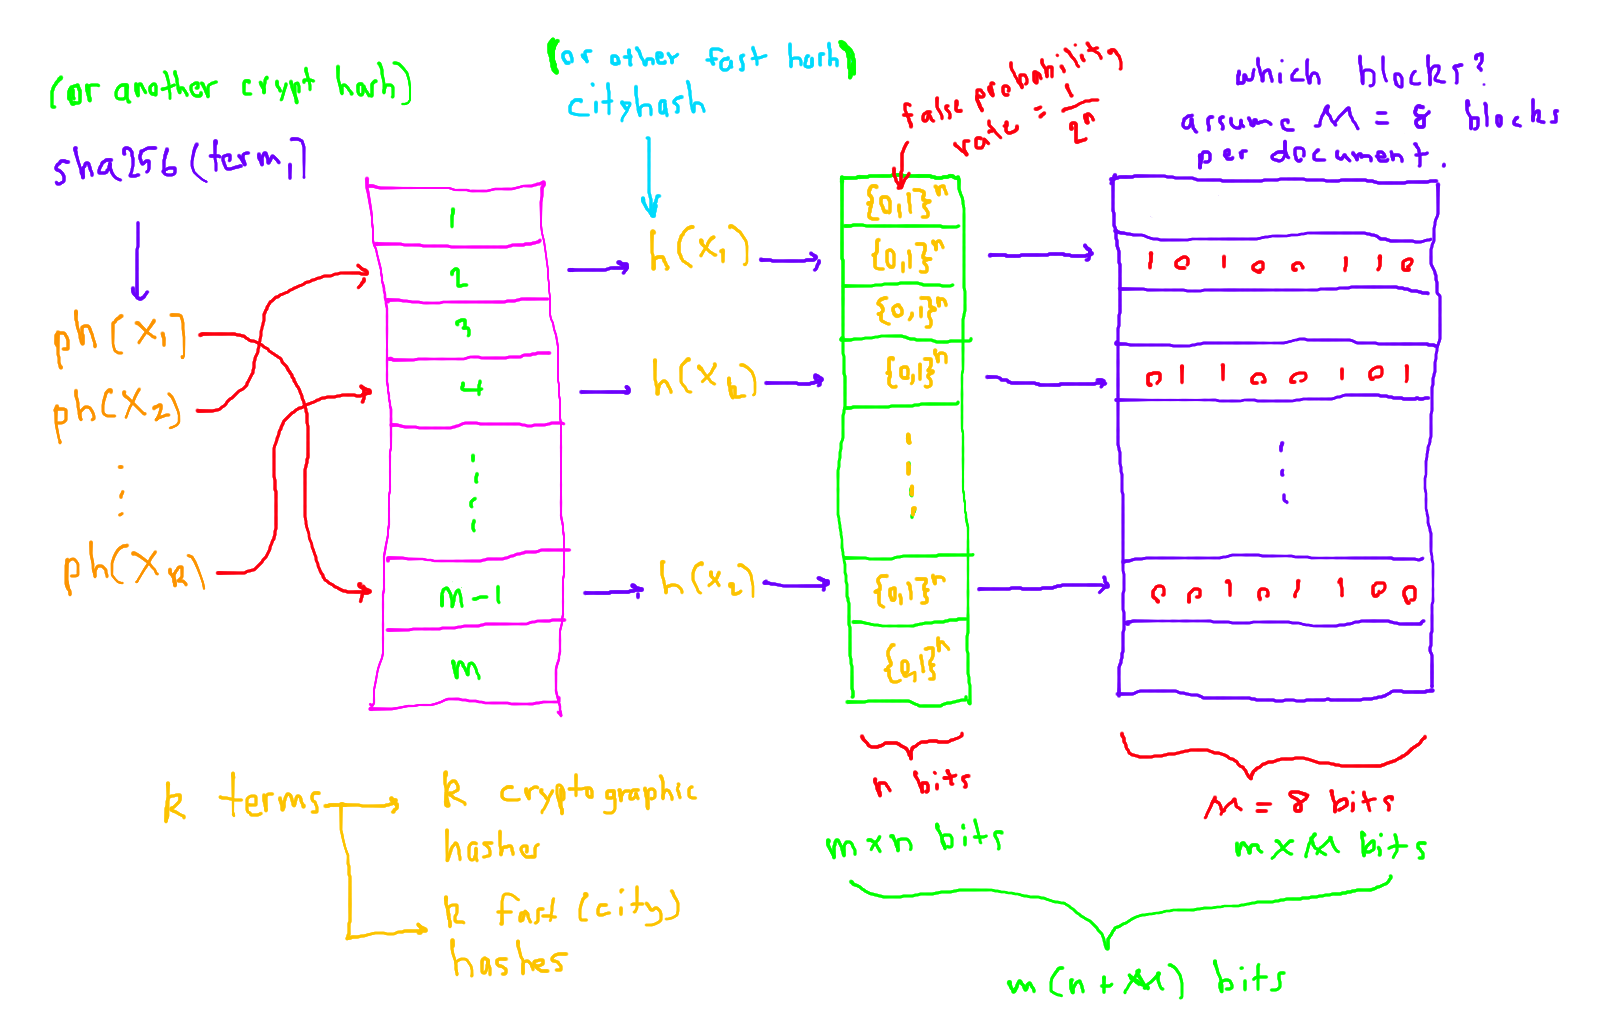 (or another crypt hash)
sha256(term,]
ph(x₁]
ph(x₂)
ph(x_k)
1
2
3
4
m-1
m
(or other fast hash)
cityhash
h(x₁)
h(x_k)
h(x₂)
false probability
rate = 1/2ⁿ
{0,1}ⁿ
{0,1}ⁿ
{0,1}ⁿ
{0,1}ⁿ
{0,1}ⁿ
{0,1}ⁿ
n bits
m x n bits
which blocks?
assume M = 8 blocks
per document.
1 0 1 0 0 1 1 0
0 1 1 0 0 1 0 1
0 0 1 0 1 1 0 0
M = 8 bits
m x M bits
m(n + M) bits
k terms
k cryptographic
hasher
k fast (city)
hashes